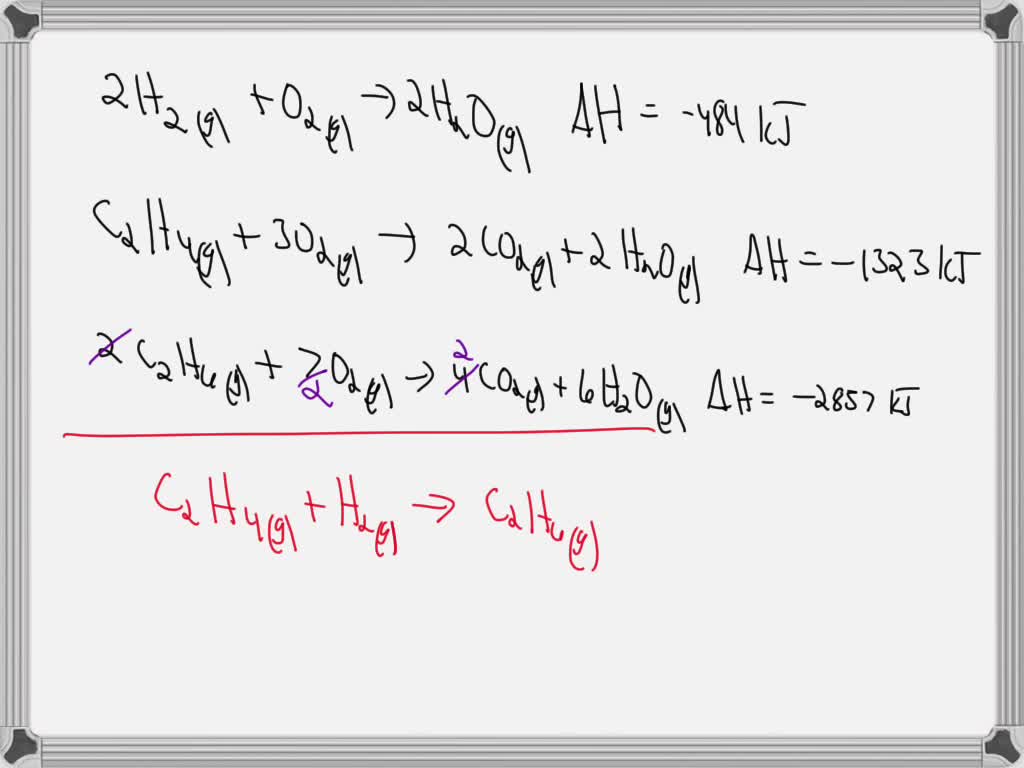 2H₂(g) + O₂(g) → 2H₂O(g) ΔH = -484 kJ
C₂H₄(g) + 3O₂(g) → 2CO₂(g) + 2H₂O(g) ΔH = -1323 kJ
2 C₂H₆(g) + 7/2 O₂(g) → 2 4 CO₂(g) + 6H₂O(g) ΔH = -2857 kJ
C₂H₄(g) + H₂(g) → C₂H₆(g)